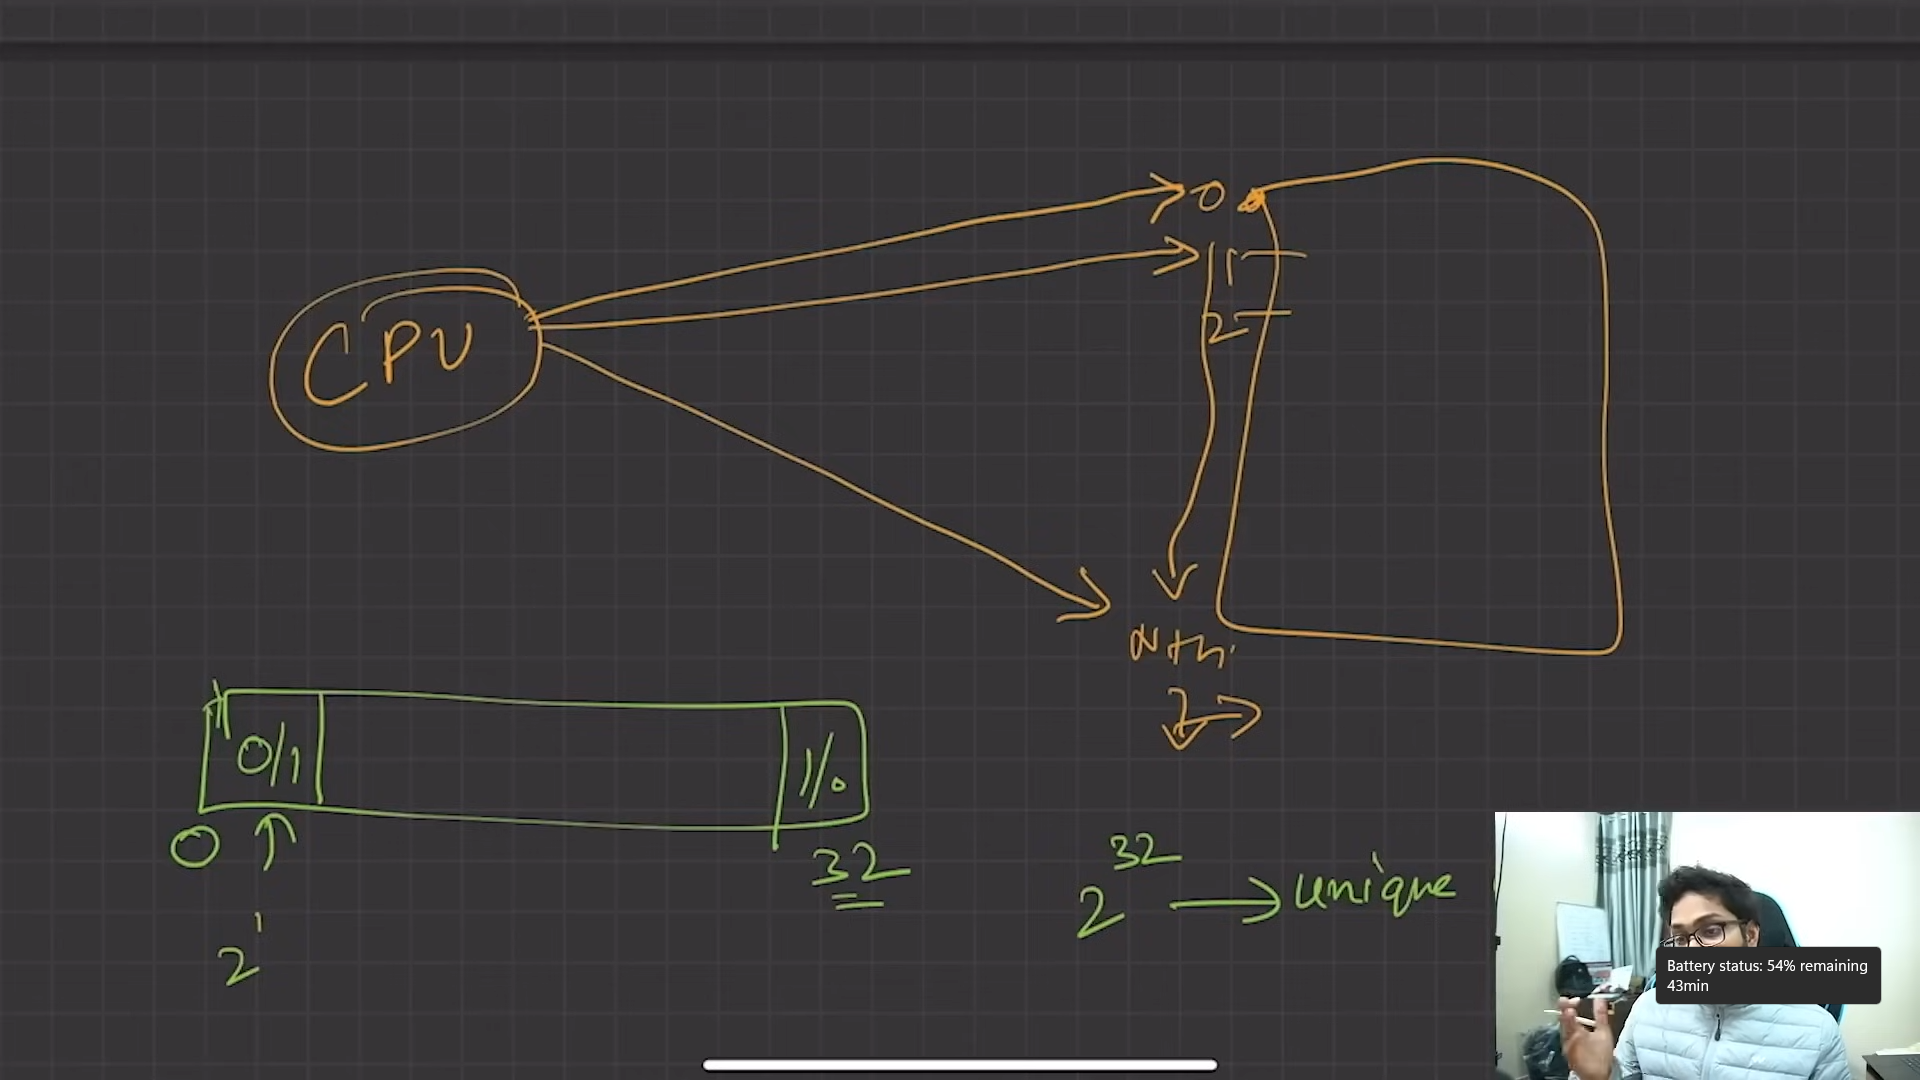 0
1
CPU
2
Nth
0/1
1/0
0
32
2^32 → unique
2^1
Battery status: 54% remaining
43min